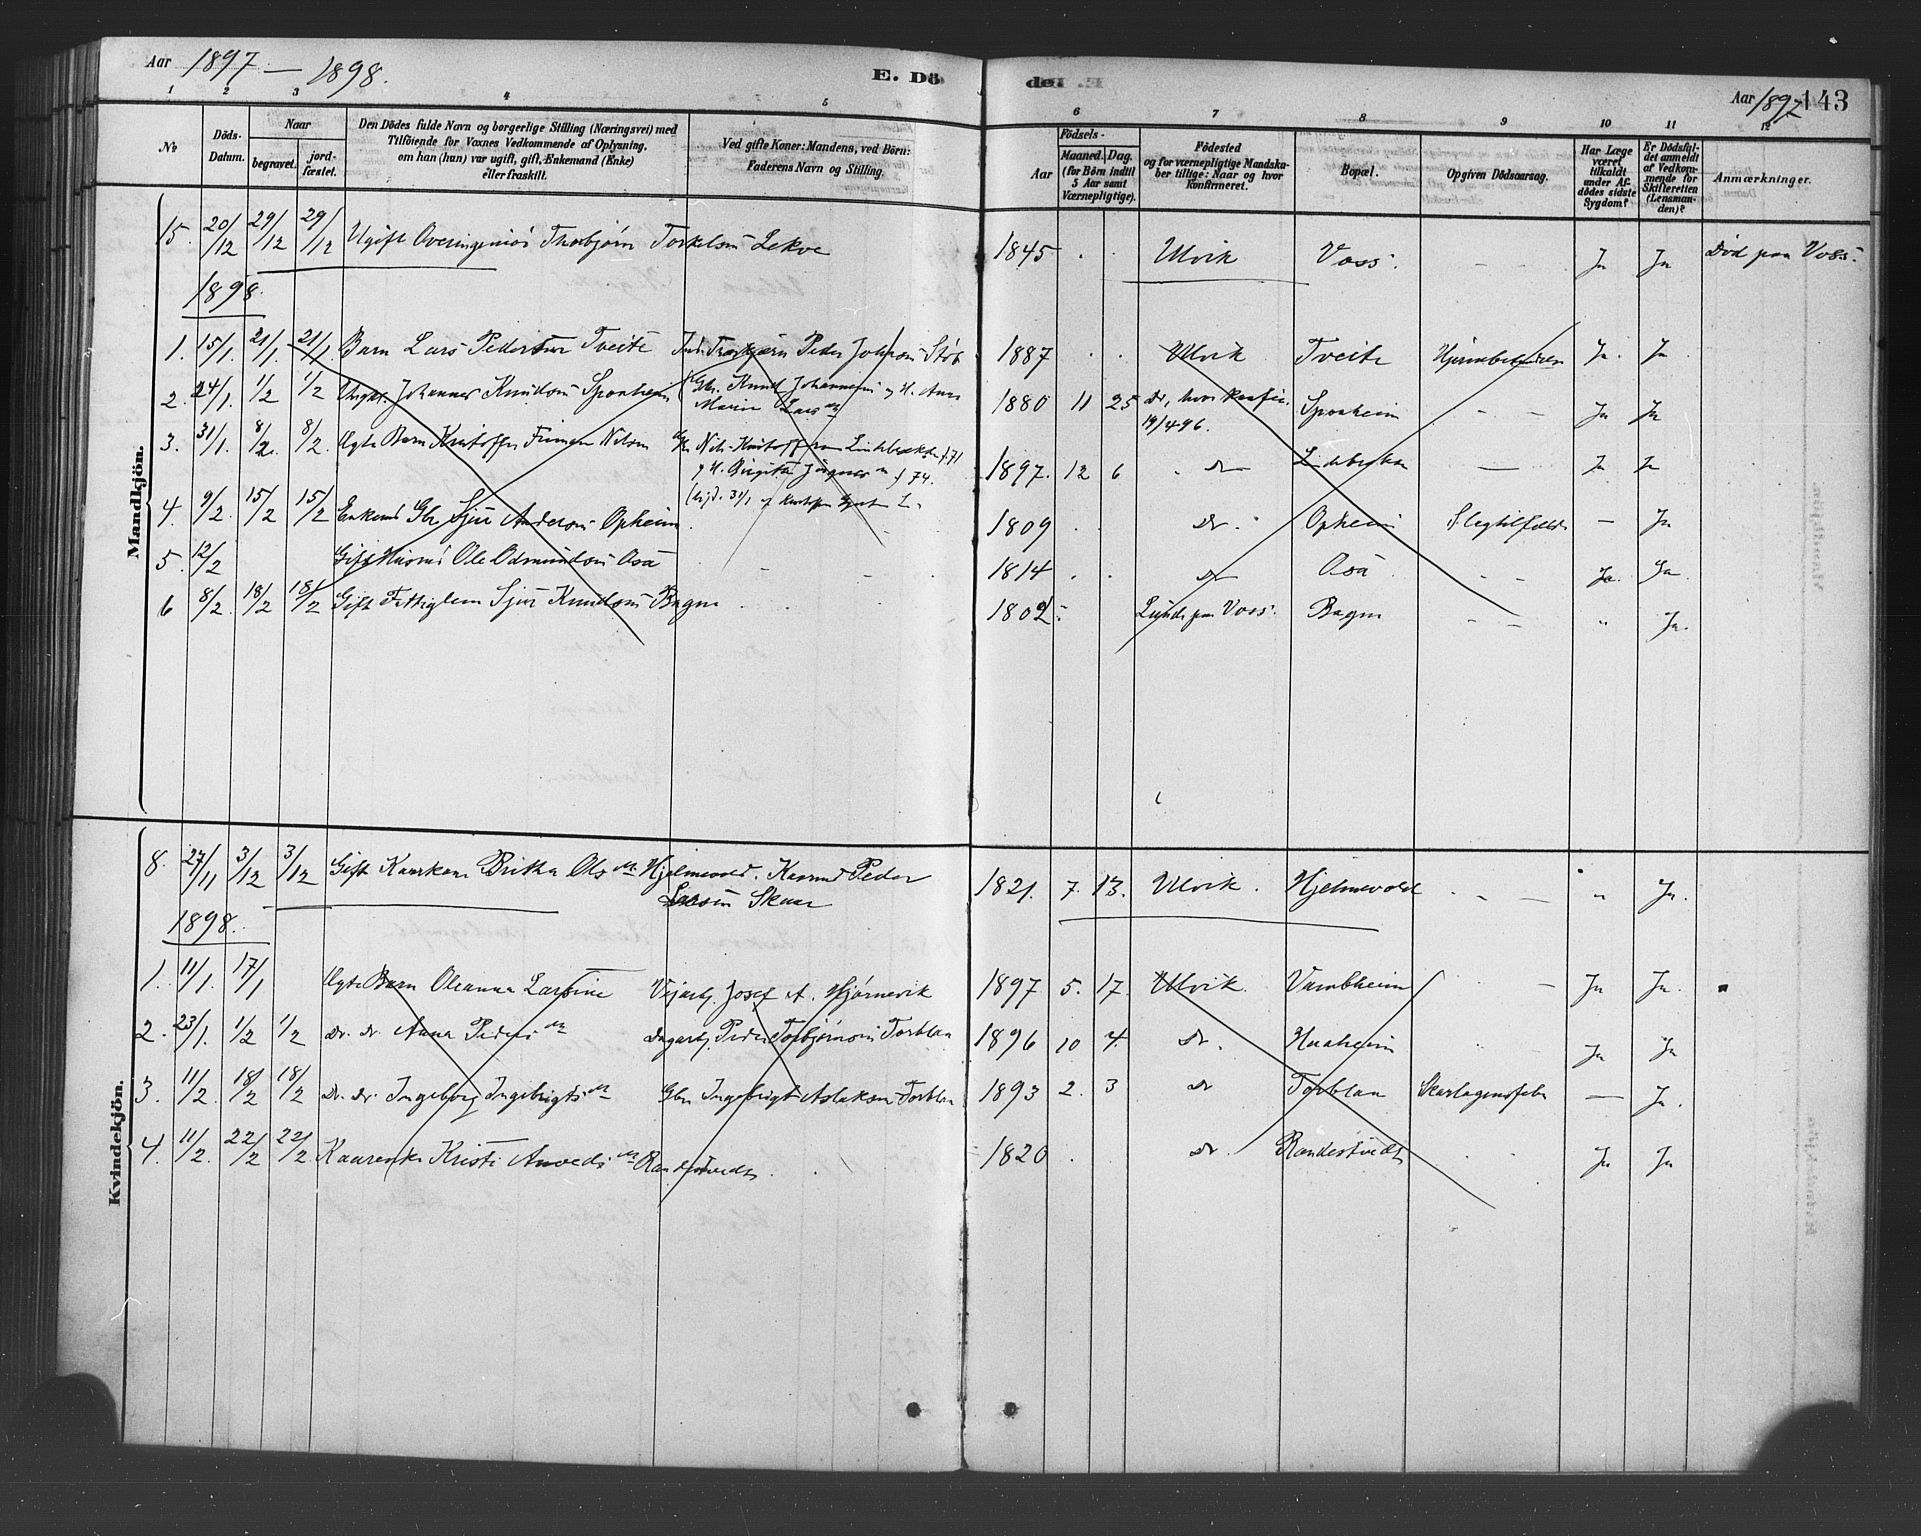 Aar 1897 — 1898.
E. Dö
Aar 1897 143
1 2 3 4 5 6 7 8 9 10 11 12
No
Döds-Datum.
Naar
begravet.
jord-fæstet.
Den Dödes fulde Navn og borgerlige Stilling (Næringsvei) med
Tilföiende for Voxnes Vedkommende af Oplysning,
om han (hun) var ugift, gift, Ænkemand (Enke)
eller fraskilt.
Ved gifte Koner: Mandens, ved Börn:
Faderens Navn og Stilling.
Födsels-
Aar
Maaned. Dag.
(for Börn indtil
5 Aar samt
Værnepligtige).
Födested
og for værnepligtige Mandska-
ber tillige: Naar og hvor
konfirmeret.
Bopæl.
Opgiven Dödsaarsag.
Har Læge
været
tilkaldt
under Af-
dödes sidste
Sygdom?
Er Dödsfal-
det anmeldt
af Vedkom-
mende for
Skifteretten
(Lensman-
den)?
Anmærkninger.
Mandkjön.
15. 20/12 29/12 29/12 Ugift Overingeniør Thorbjørn Torkelsen Lekve 1845 . . Ulvik Voss. - - Ja Ja Död paa Voss.
1898.
1. 15/1. 21/1. 21/1. Barn Lars Pedersen Tveite Peder 1887 . . Ulvik Tveite Ja. Ja
2. 24/1. 1/2 1/2 Johannes Knudsen Sponheim Gbr. Knud Johannesen og H. Anna
Marie Larsdr 1880 11 25 Do, hvor konfir. 19/4 96. Sponheim - - Ja Ja
3. 31/1. 8/2. 8/2. Ægte Barn Kristoffer Nilsen Nils f. 71
og H. Birgitta f 74. 1897. 12 6 . Do — Ja Ja
4. 9/2. 15/2 15/2 Enkemd Gbr Sjur Andersen Opheim. 1809 . Do. Opheim — Ja
5. 12/2 Gift Husmd Ole Odmundsen Osa - - 1814 . . Do Osa - - Ja. Ja.
6 8/2. 18/2 18/2 Gift Sjur Knudsen Bagne . 1802 Lunde paa Voss. Bagne - - " Ja.
Kvindekjön.
8. 27/11 3/12 3/12 Gift Kaarkone Britha Olsdr Hjelmevold. Kaarmd Peder
Larsen Skaar 1821. 7. 13. Ulvik. Hjelmevold - - — " Ja.
1898.
1. 11/1. 17/1 Ægte Barn Oleanna Larsine Vejarb. Josef A. Hjørnevik 1897 5. 17. Ulvik. Vambheim . — Ja Ja.
2. 23/1. 1/2 1/2 Do. Do Anna Pedersdr Dagarb. Peder Torbjørnsen Torblaa 1896 10 4. Do. Haaheim . - Ja Ja
3. 11/2. 18/2 18/2 Do. Do. Ingeborg Ingebrigtsdr Gbr. Ingebrigt Aslaksen Torblaa 1893 2. 3 Do Torblaa Skarlagensfeber — Ja.
4. 11/2. 22/2 22/2 Kaarenke Kristi Anvedsdr Randestvedt. . 1820 . . Do. Randestvedt . . Ja Ja